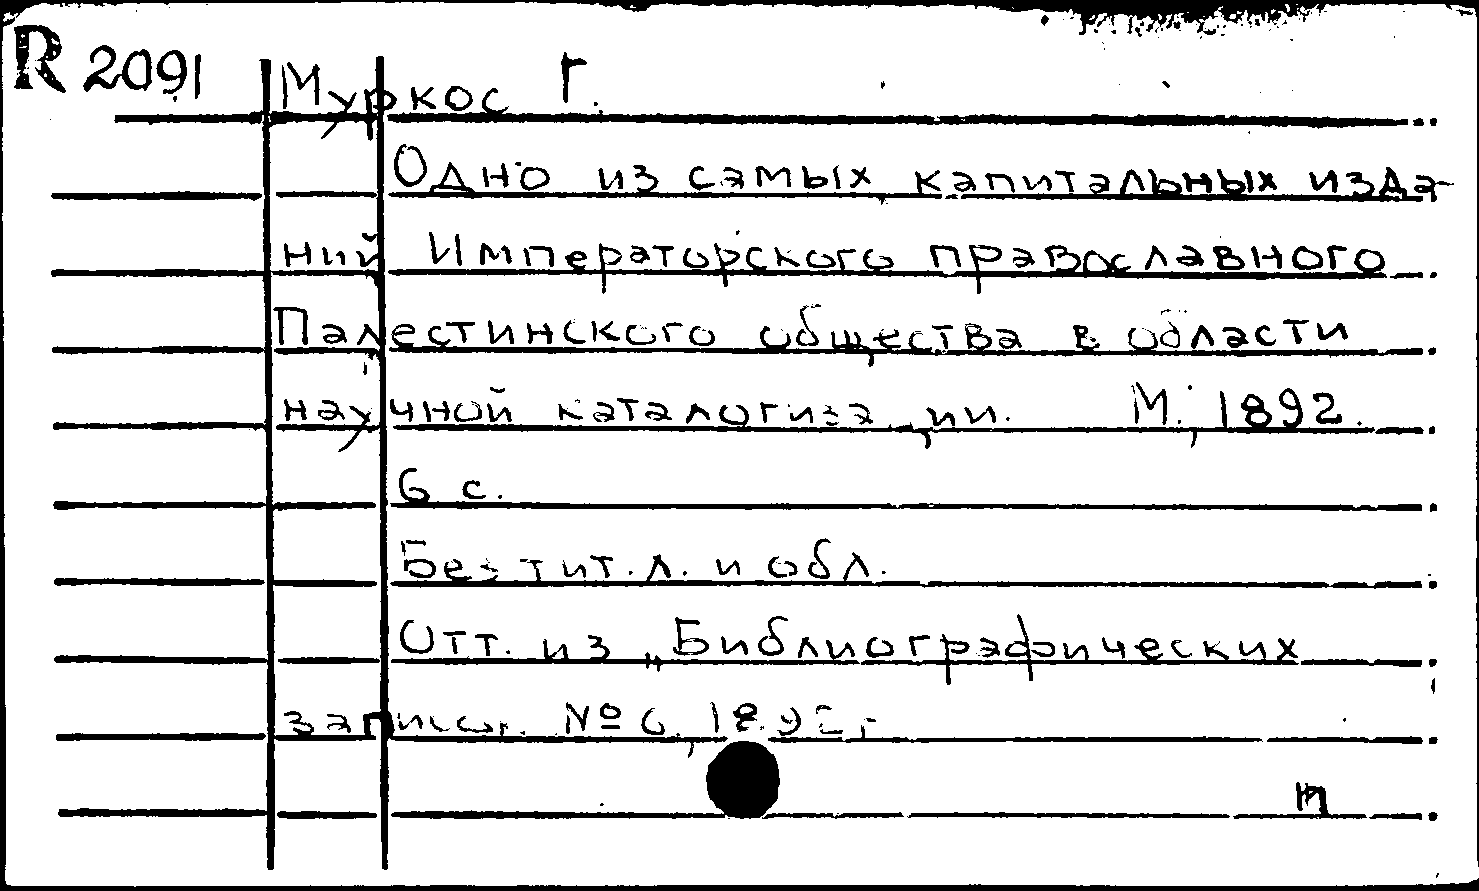 R 2091
Муркос Г.
Одно из самых капитальных изда-
ний Императорского православного
Палестинского общества в области
научной каталогизации. М., 1892.
6 с.
Без тит. л. и обл.
Отт. из „Библиографических
записок. № 6, 1892 г
п